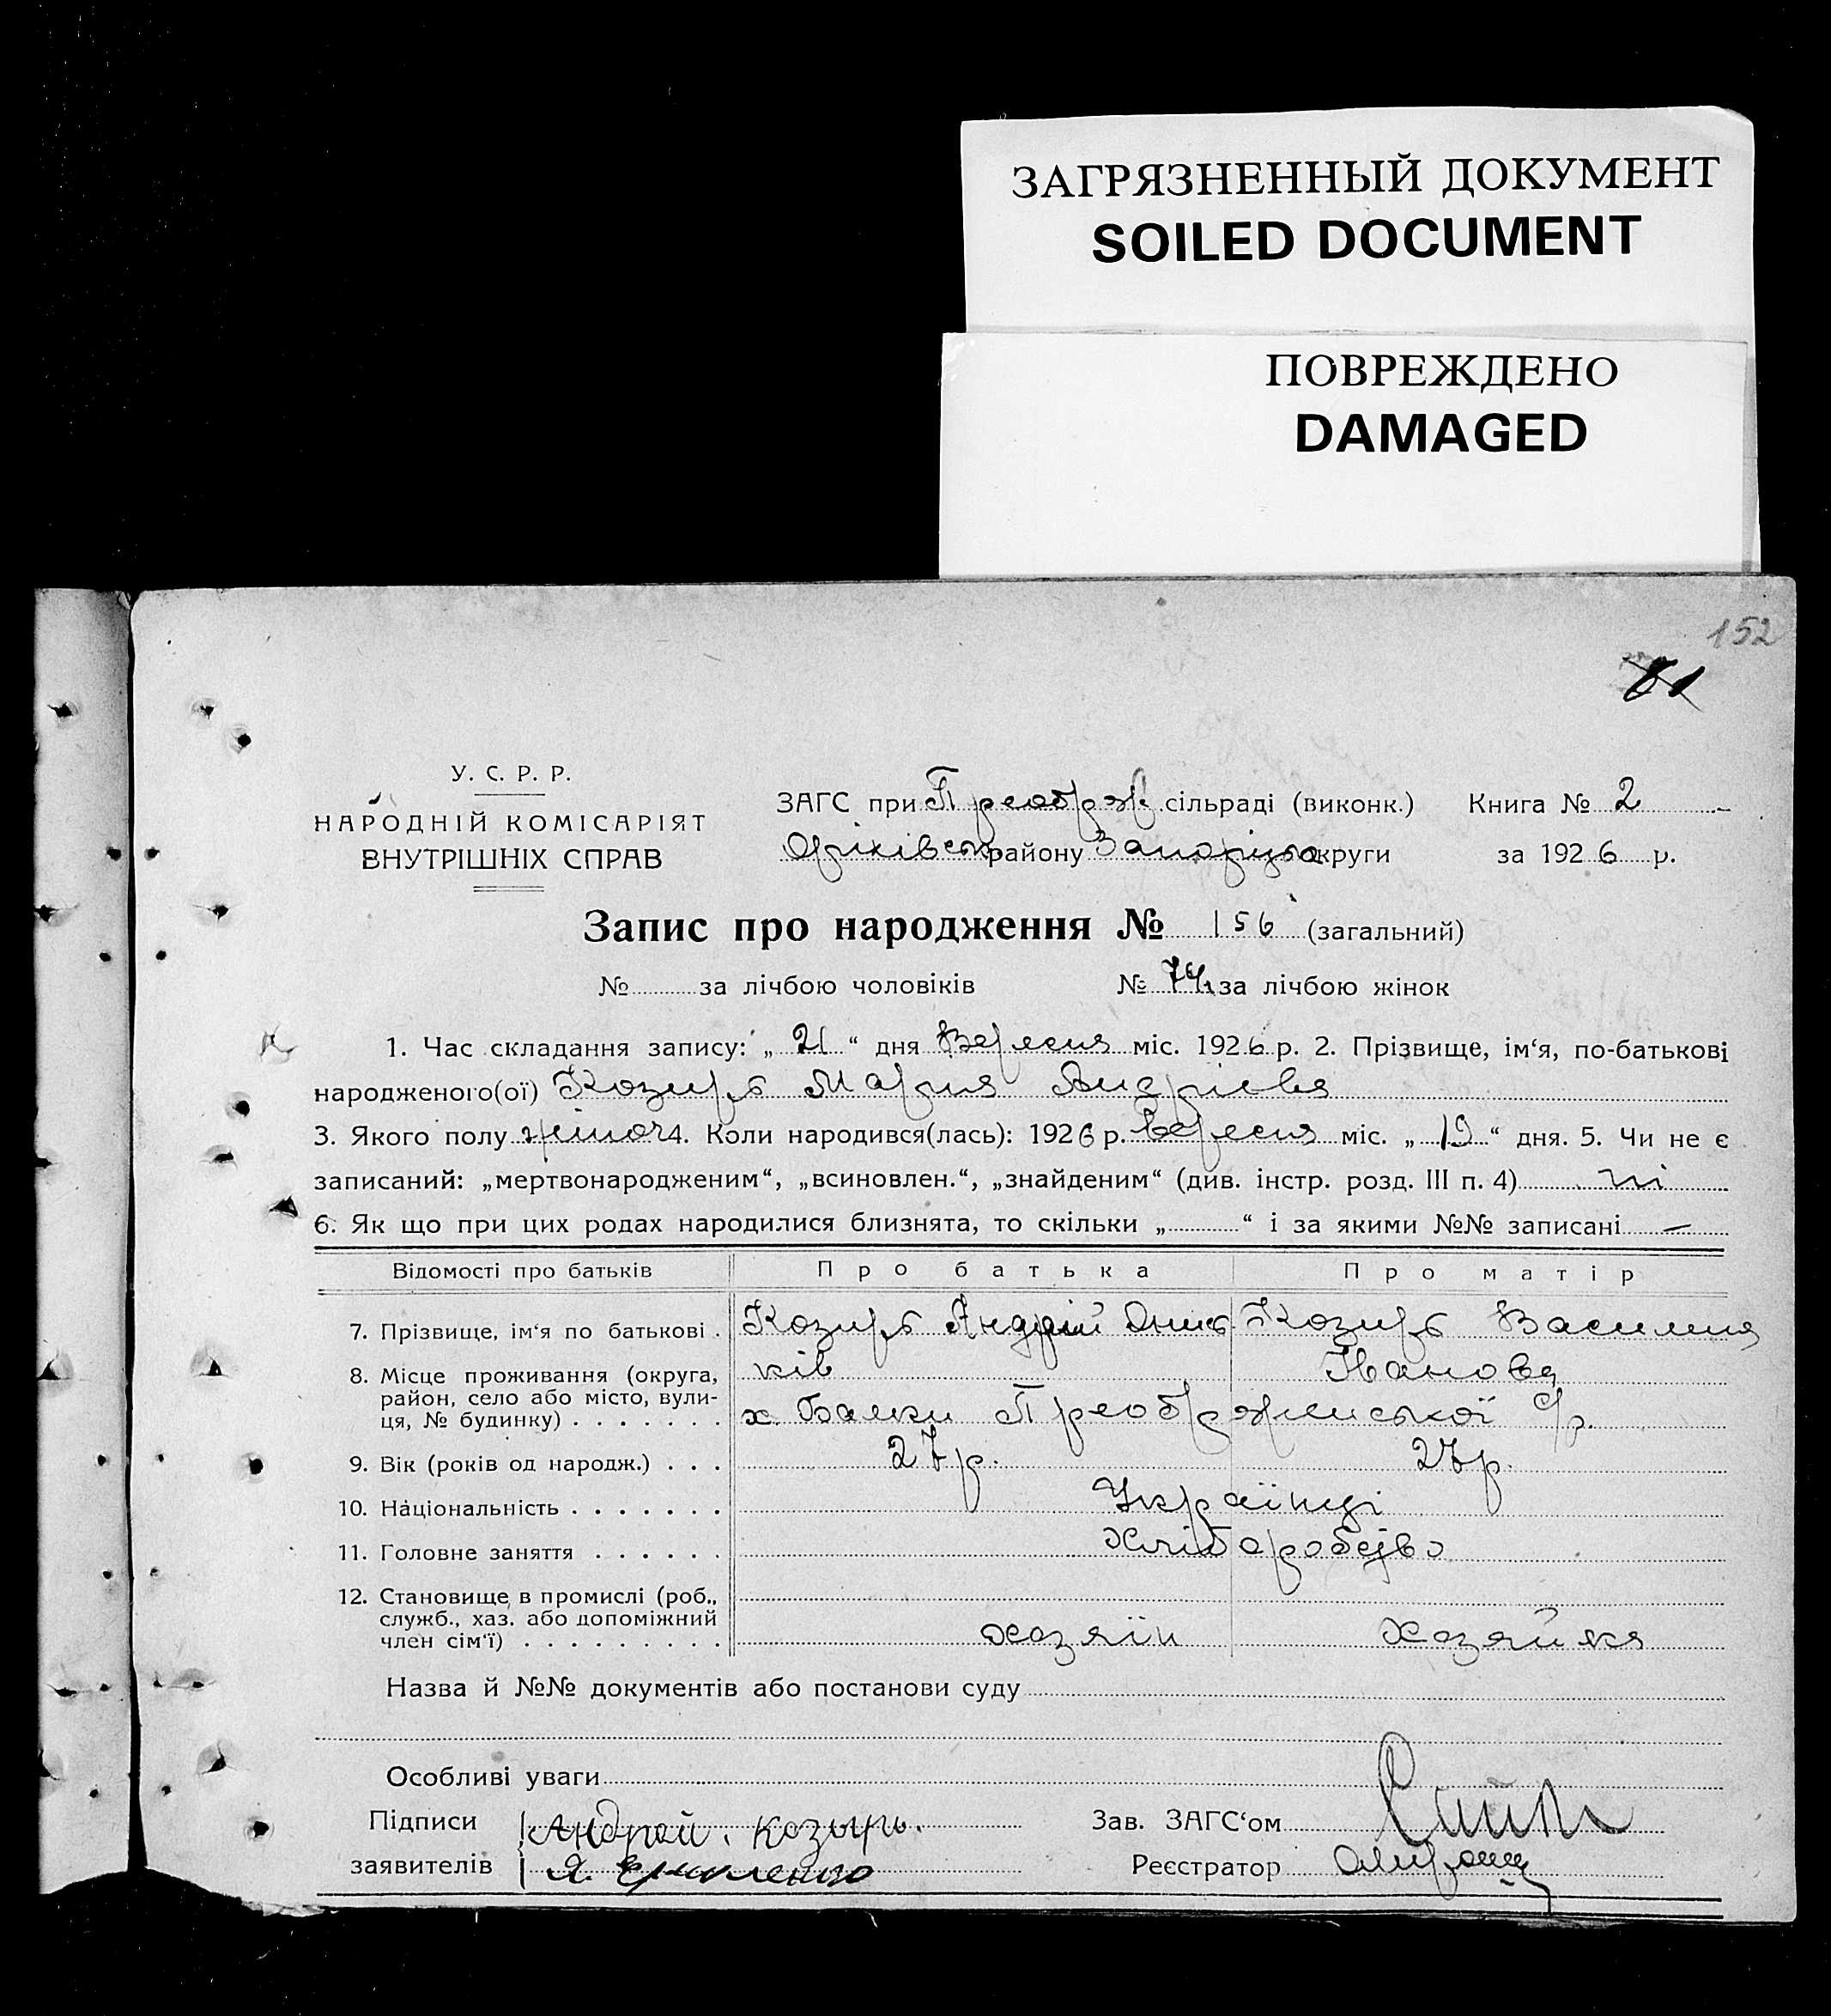 ЗАГРЯЗНЕННЫЙ ДОКУМЕНТ
SOILED DOCUMENT
ПОВРЕЖДЕНО
DAMAGED
152
У. С. Р. Р.
НАРОДНІЙ КОМІСАРІЯТ
ВНУТРІШНІХ СПРАВ
ЗАГС при Преображ. сільраді (виконк.) Книга № 2
Оріківськ району Запоріцьк округи за 1926 р.
Запис про народження № 156 (загальний)
№ за лічбою чоловіків № 74 за лічбою жінок
1. Час складання запису: „ 21 “ дня Вересня міс. 1926 р. 2. Прізвище, ім‘я, по-батькові
народженого(ої) Козирь Мария Андрієва
3. Якого полу жіноч 4. Коли народився(лась): 1926 р. вересня міс. „ 19 “ дня. 5. Чи не є
записаний: „мертвонародженим“, „всиновлен.“, „знайденим“ (див. інстр. розд. III п. 4) ні
6. Як що при цих родах народилися близнята, то скільки „ “ і за якими №№ записані —
Відомості про батьків Про батька Про матір
7. Прізвище, ім‘я по батькові . Козирь Андрій Онис Козирь Василина
ків Іванова
8. Місце проживання (округа,
район, село або місто, вули-
ця, № будинку) . . . . . . . х. Балки Преображенської С/р.
9. Вік (років од народж.) . . . 27 р. 27 р.
10. Національність . . . . . . . Українці
11. Головне заняття . . . . . . Хліборобство
12. Становище в промислі (роб.,
служб., хаз. або допоміжний
член сім‘ї) . . . . . . . . . хозяїн хозяйка
Назва й №№ документів або постанови суду
Особливі уваги
Підписи Андрей Козырь.
Зав. ЗАГС‘ом
заявителів Я.
Реєстратор